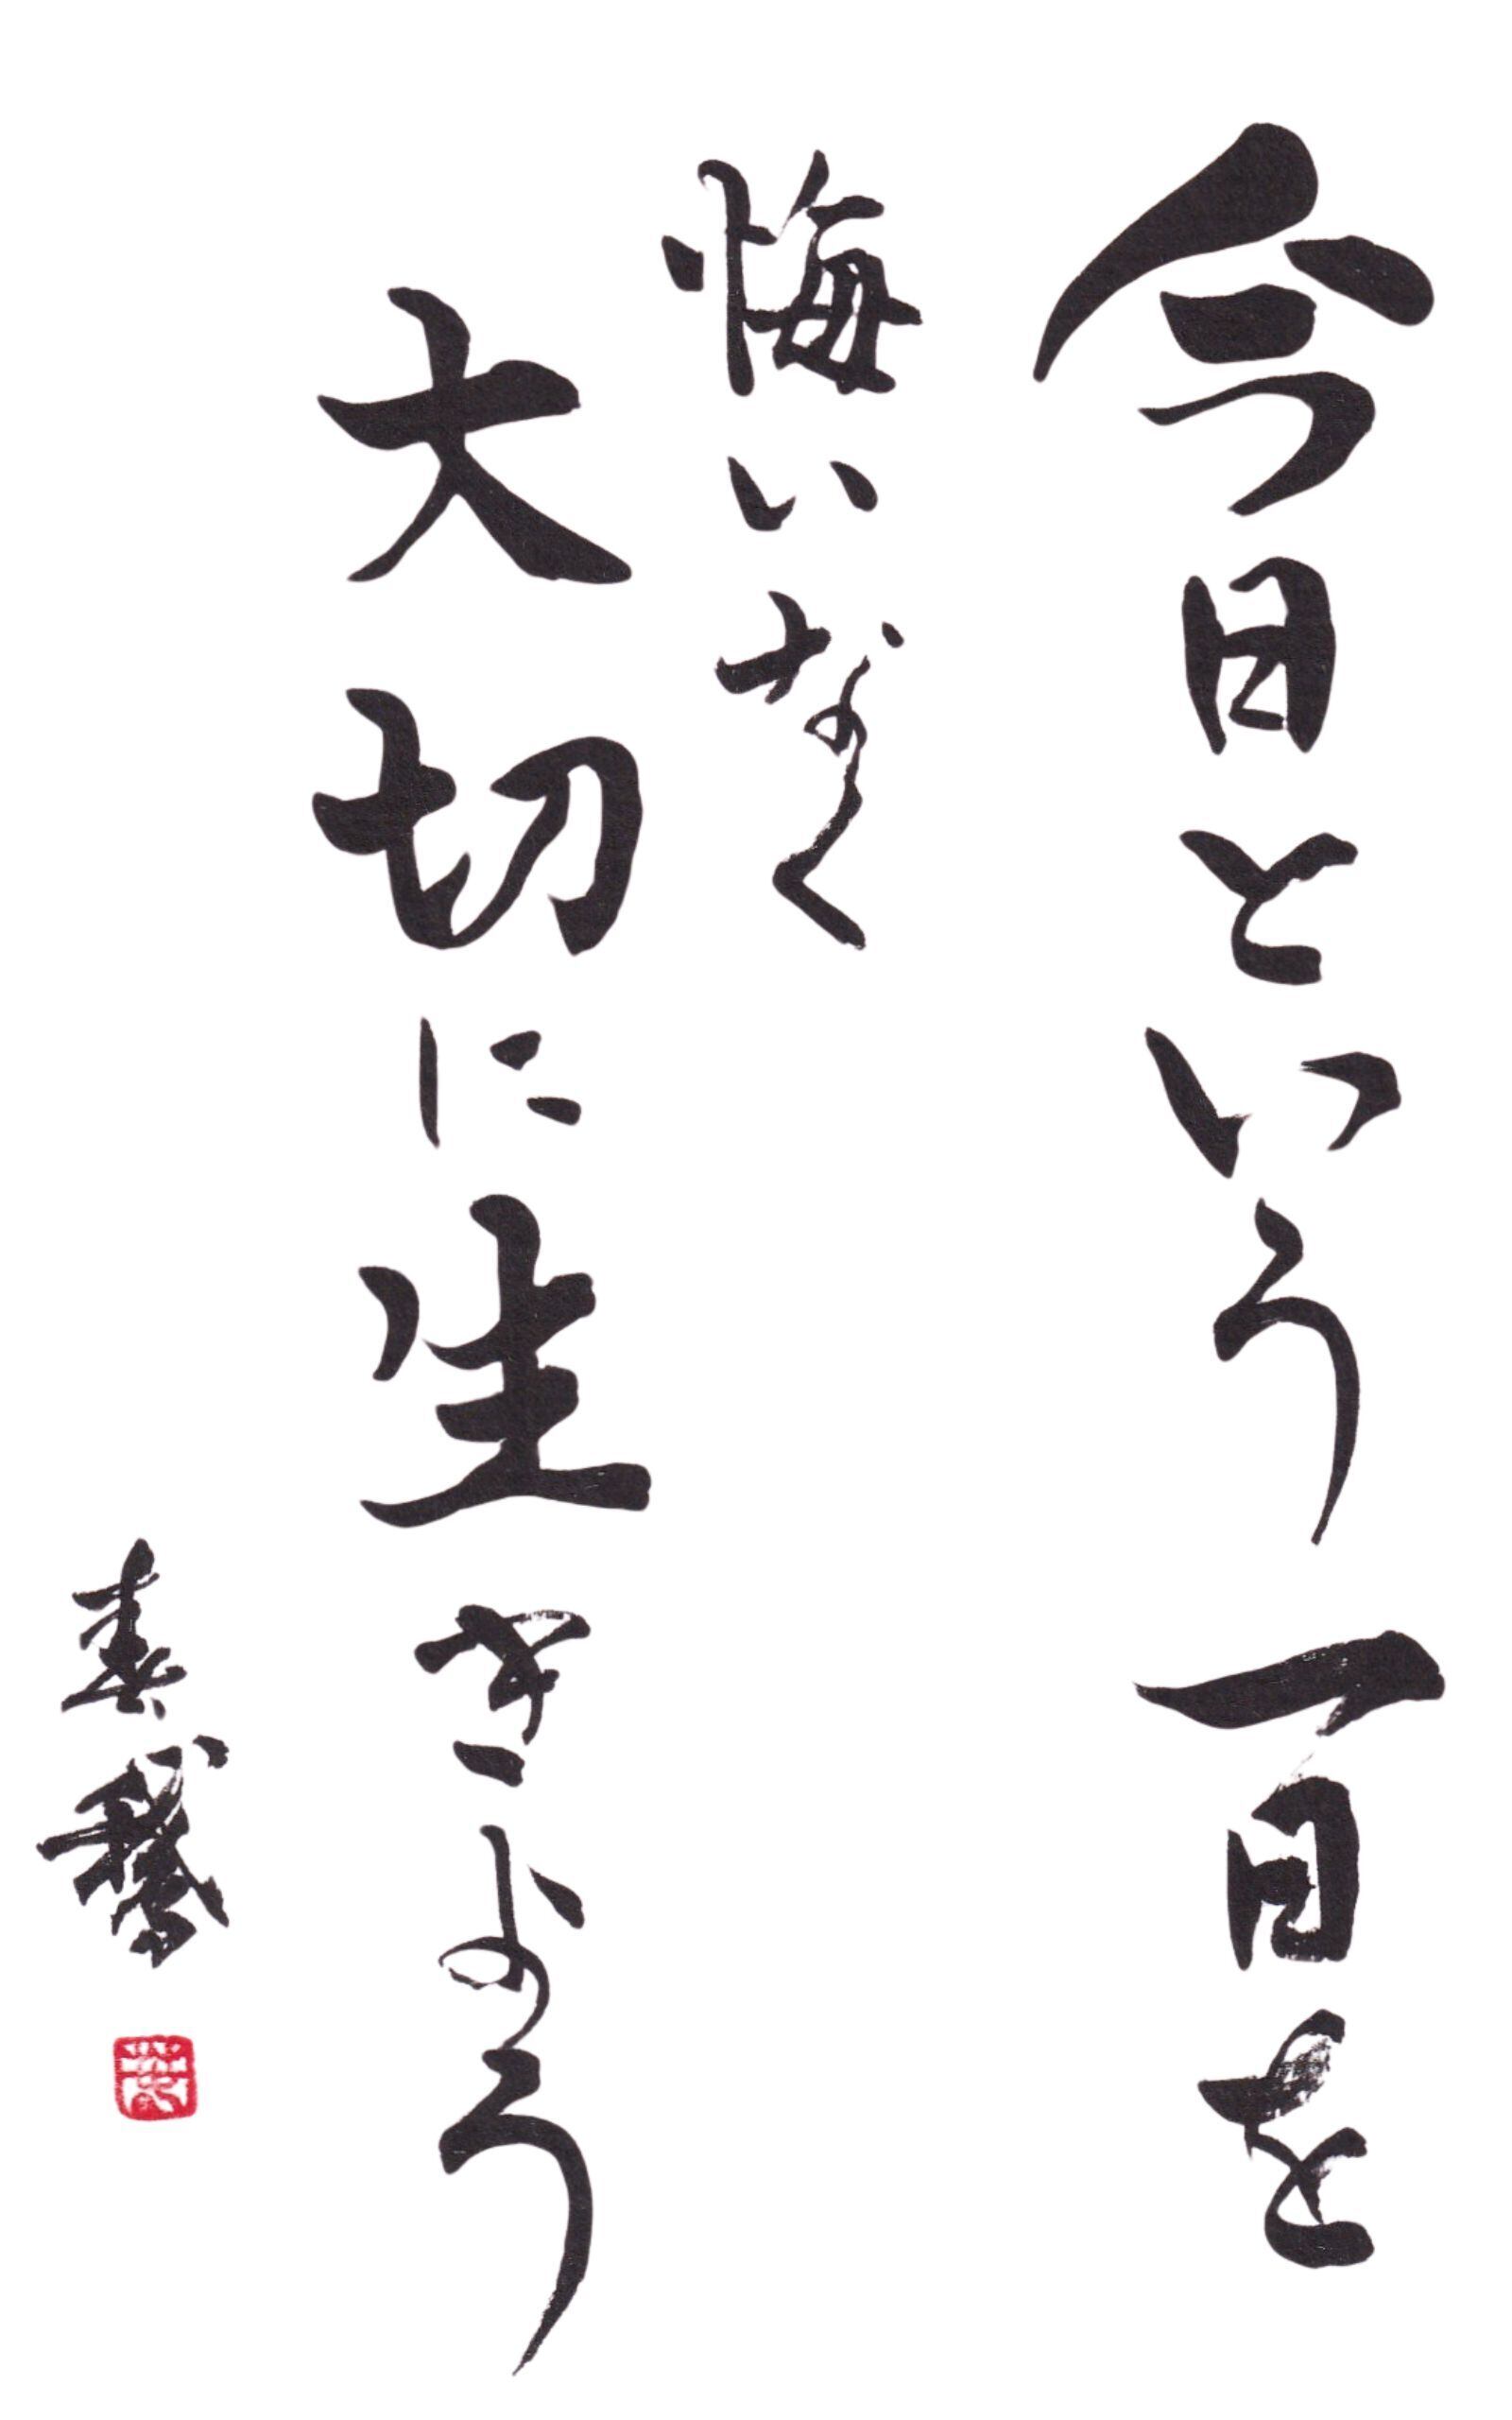 今日という一日を
悔いなく
大切に生きよう